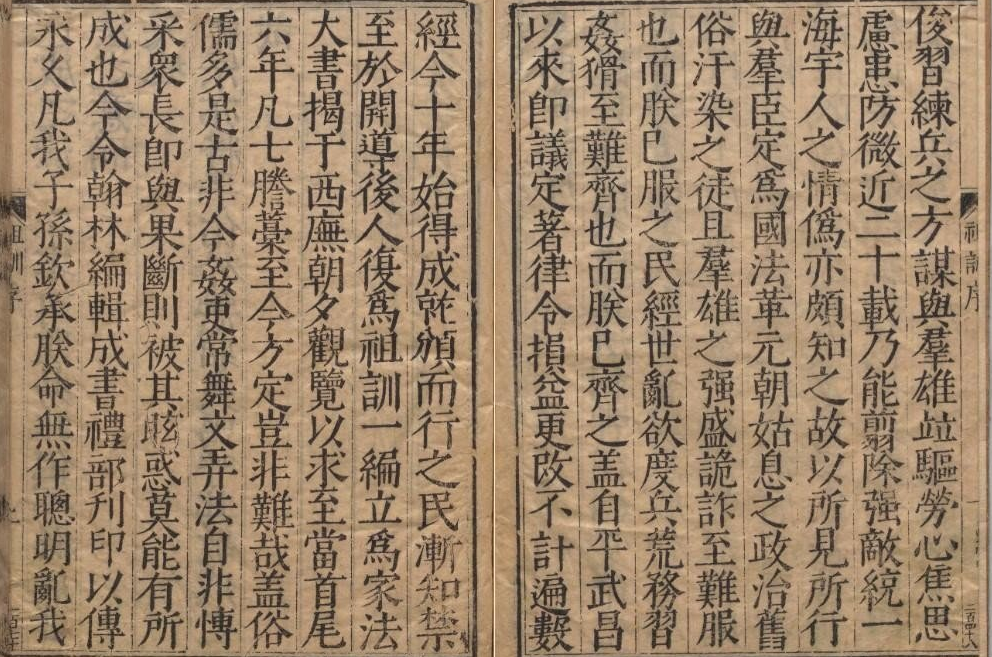 祖訓序
俊習練兵之方謀與羣雄竝驅勞心焦思
慮患防微近二十載乃能翦除强敵統一
海宇人之情僞亦頗知之故以所見所行
與羣臣定爲國法革元朝姑息之政治舊
俗汙染之徒且羣雄之强盛詭詐至難服
也而朕已服之民經世亂欲度兵荒務習
姦猾至難齊也而朕已齊之盖自平武昌
以來即議定著律令損益更改不計遍數
經今十年始得成就頒而行之民漸知禁
至於開導後人復爲祖訓一編立爲家法
大書揭于西廡朝夕觀覽以求至當首尾
六年凡七謄藁至今方定豈非難哉盖俗
儒多是古非今姦吏常舞文弄法自非博
采衆長即與果斷則被其眩惑莫能有所
成也今令翰林編輯成書禮部刊印以傳
永久凡我子孫欽承朕命無作聰明亂我
祖訓序